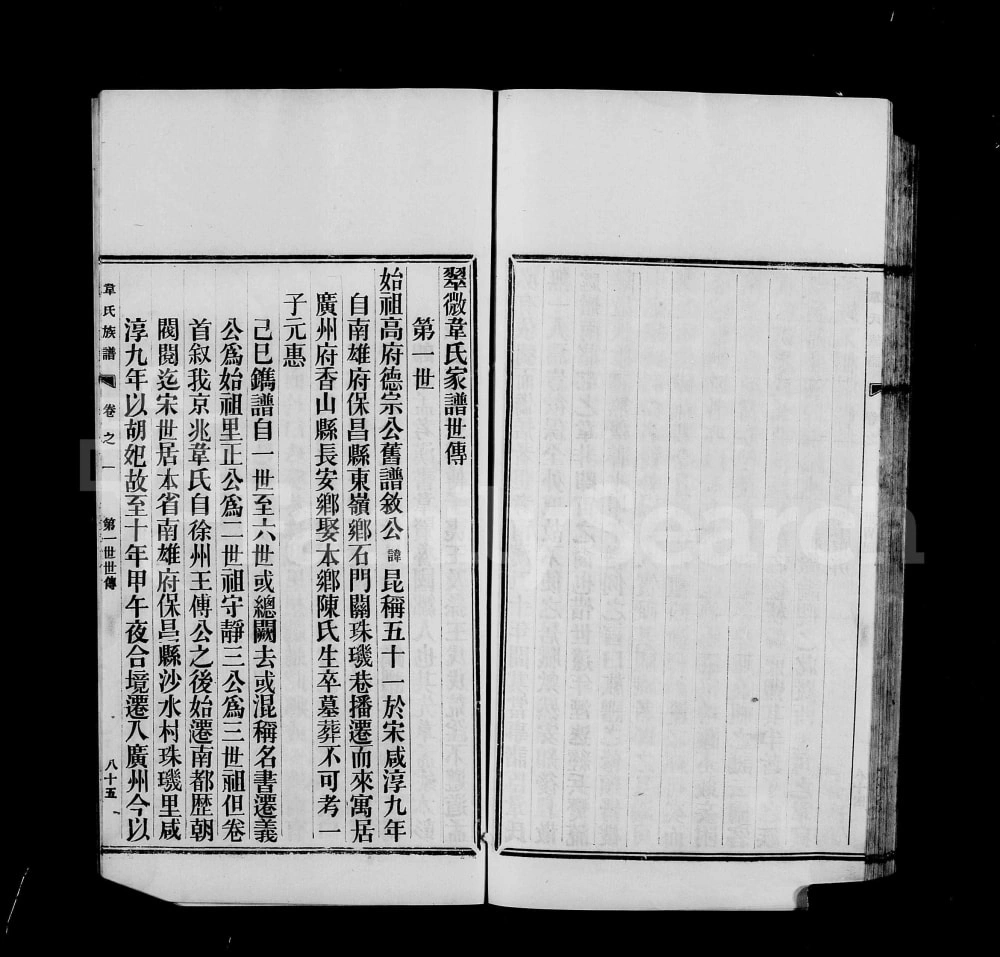 翠微韋氏家譜世傳
第一世
始祖高府德宗公舊譜敘公諱昆稱五十一於宋咸淳九年
自南雄府保昌縣東嶺鄉石門關珠璣巷播遷而來寓居
廣州府香山縣長安鄉娶本鄉陳氏生卒墓葬不可考一
子元惠
己巳鐫譜自一世至六世或總闕去或混稱名書遷義
公爲始祖里正公爲二世祖守靜三公爲三世祖但卷
首叙我京兆韋氏自徐州王傅公之後始遷南都歴朝
閥閱迄宋世居本省南雄府保昌縣沙水村珠璣里咸
淳九年以胡妃故至十年甲午夜合境遷入廣州今以
韋氏族譜
卷之一
第一世世傳
八十五